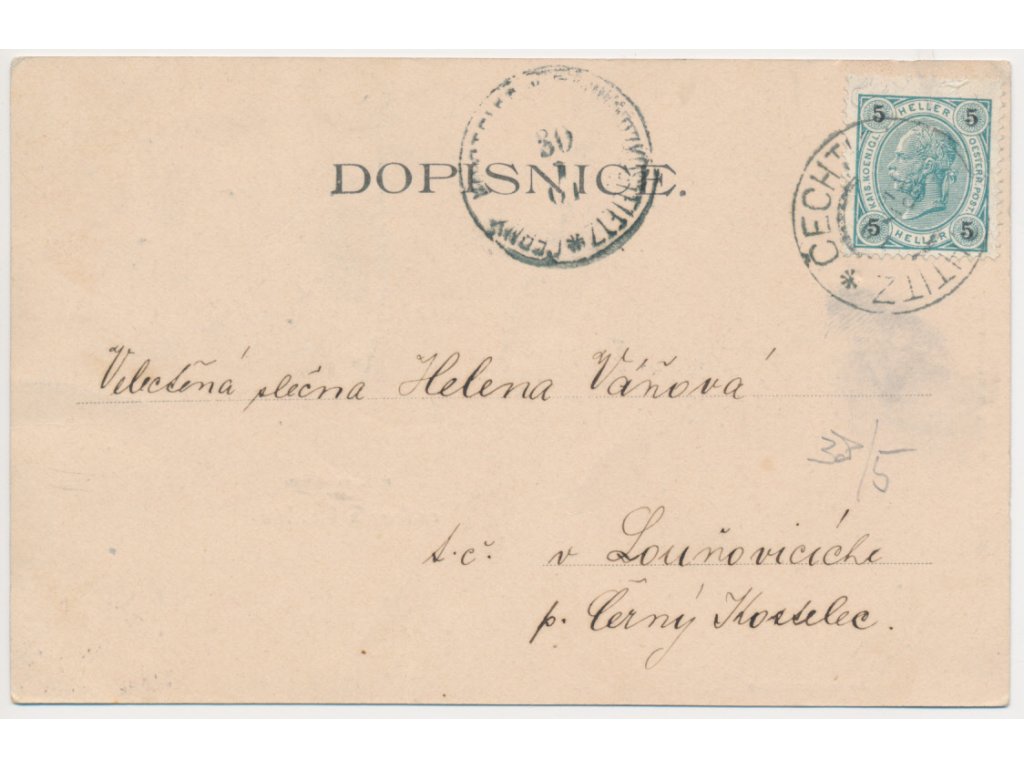 DOPISNICE.
30
5 HELLER 5
KAIS. KOENIGL. OESTERR. POST.
5 HELLER 5
ČECHTI
HTITZ
Velectěná slečna Helena Váňová
38/5
t.č. v Louňovicích
p. Černý Kostelec.